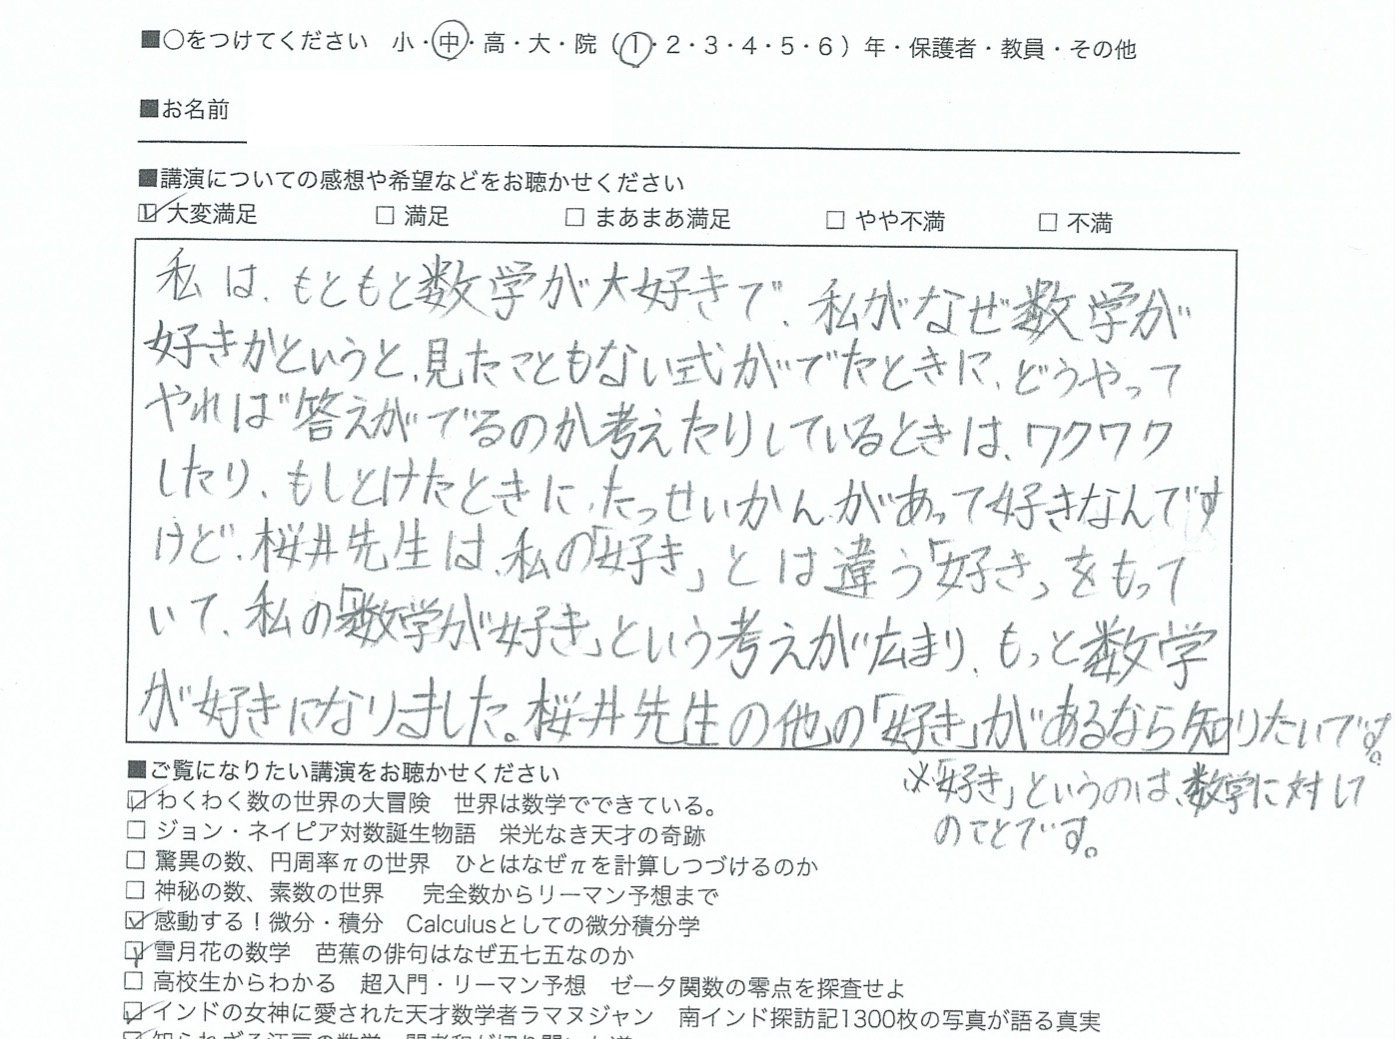 ■○をつけてください　小・中・高・大・院（1・2・3・4・5・6）年・保護者・教員・その他
■お名前
■講演についての感想や希望などをお聴かせください
☑ 大変満足　□ 満足　□ まあまあ満足　□ やや不満　□ 不満
私は、もともと数学が大好きで、私がなぜ数学が
好きかというと、見たこともない式がでたときに、どうやって
やれば答えがでるのか考えたりしているときは、ワクワク
したり、もしとけたときに、たっせいかんがあって好きなんです
けど、桜井先生は、私の「好き」とは違う「好き」をもって
いて、私の「数学が好き」という考えが広まり、もっと数学
が好きになりました。桜井先生の他の「好き」があるなら知りたいです。
※「好き」というのは、数学に対して
のことです。
■ご覧になりたい講演をお聴かせください
☑ わくわく数の世界の大冒険　世界は数学でできている。
□ ジョン・ネイピア対数誕生物語　栄光なき天才の奇跡
□ 驚異の数、円周率πの世界　ひとはなぜπを計算しつづけるのか
□ 神秘の数、素数の世界　完全数からリーマン予想まで
☑ 感動する！微分・積分　Calculusとしての微分積分学
☑ 雪月花の数学　芭蕉の俳句はなぜ五七五なのか
□ 高校生からわかる　超入門・リーマン予想　ゼータ関数の零点を探査せよ
☑ インドの女神に愛された天才数学者ラマヌジャン　南インド探訪記1300枚の写真が語る真実
☑ 知られざる江戸の数学　関孝和が切り開いた道